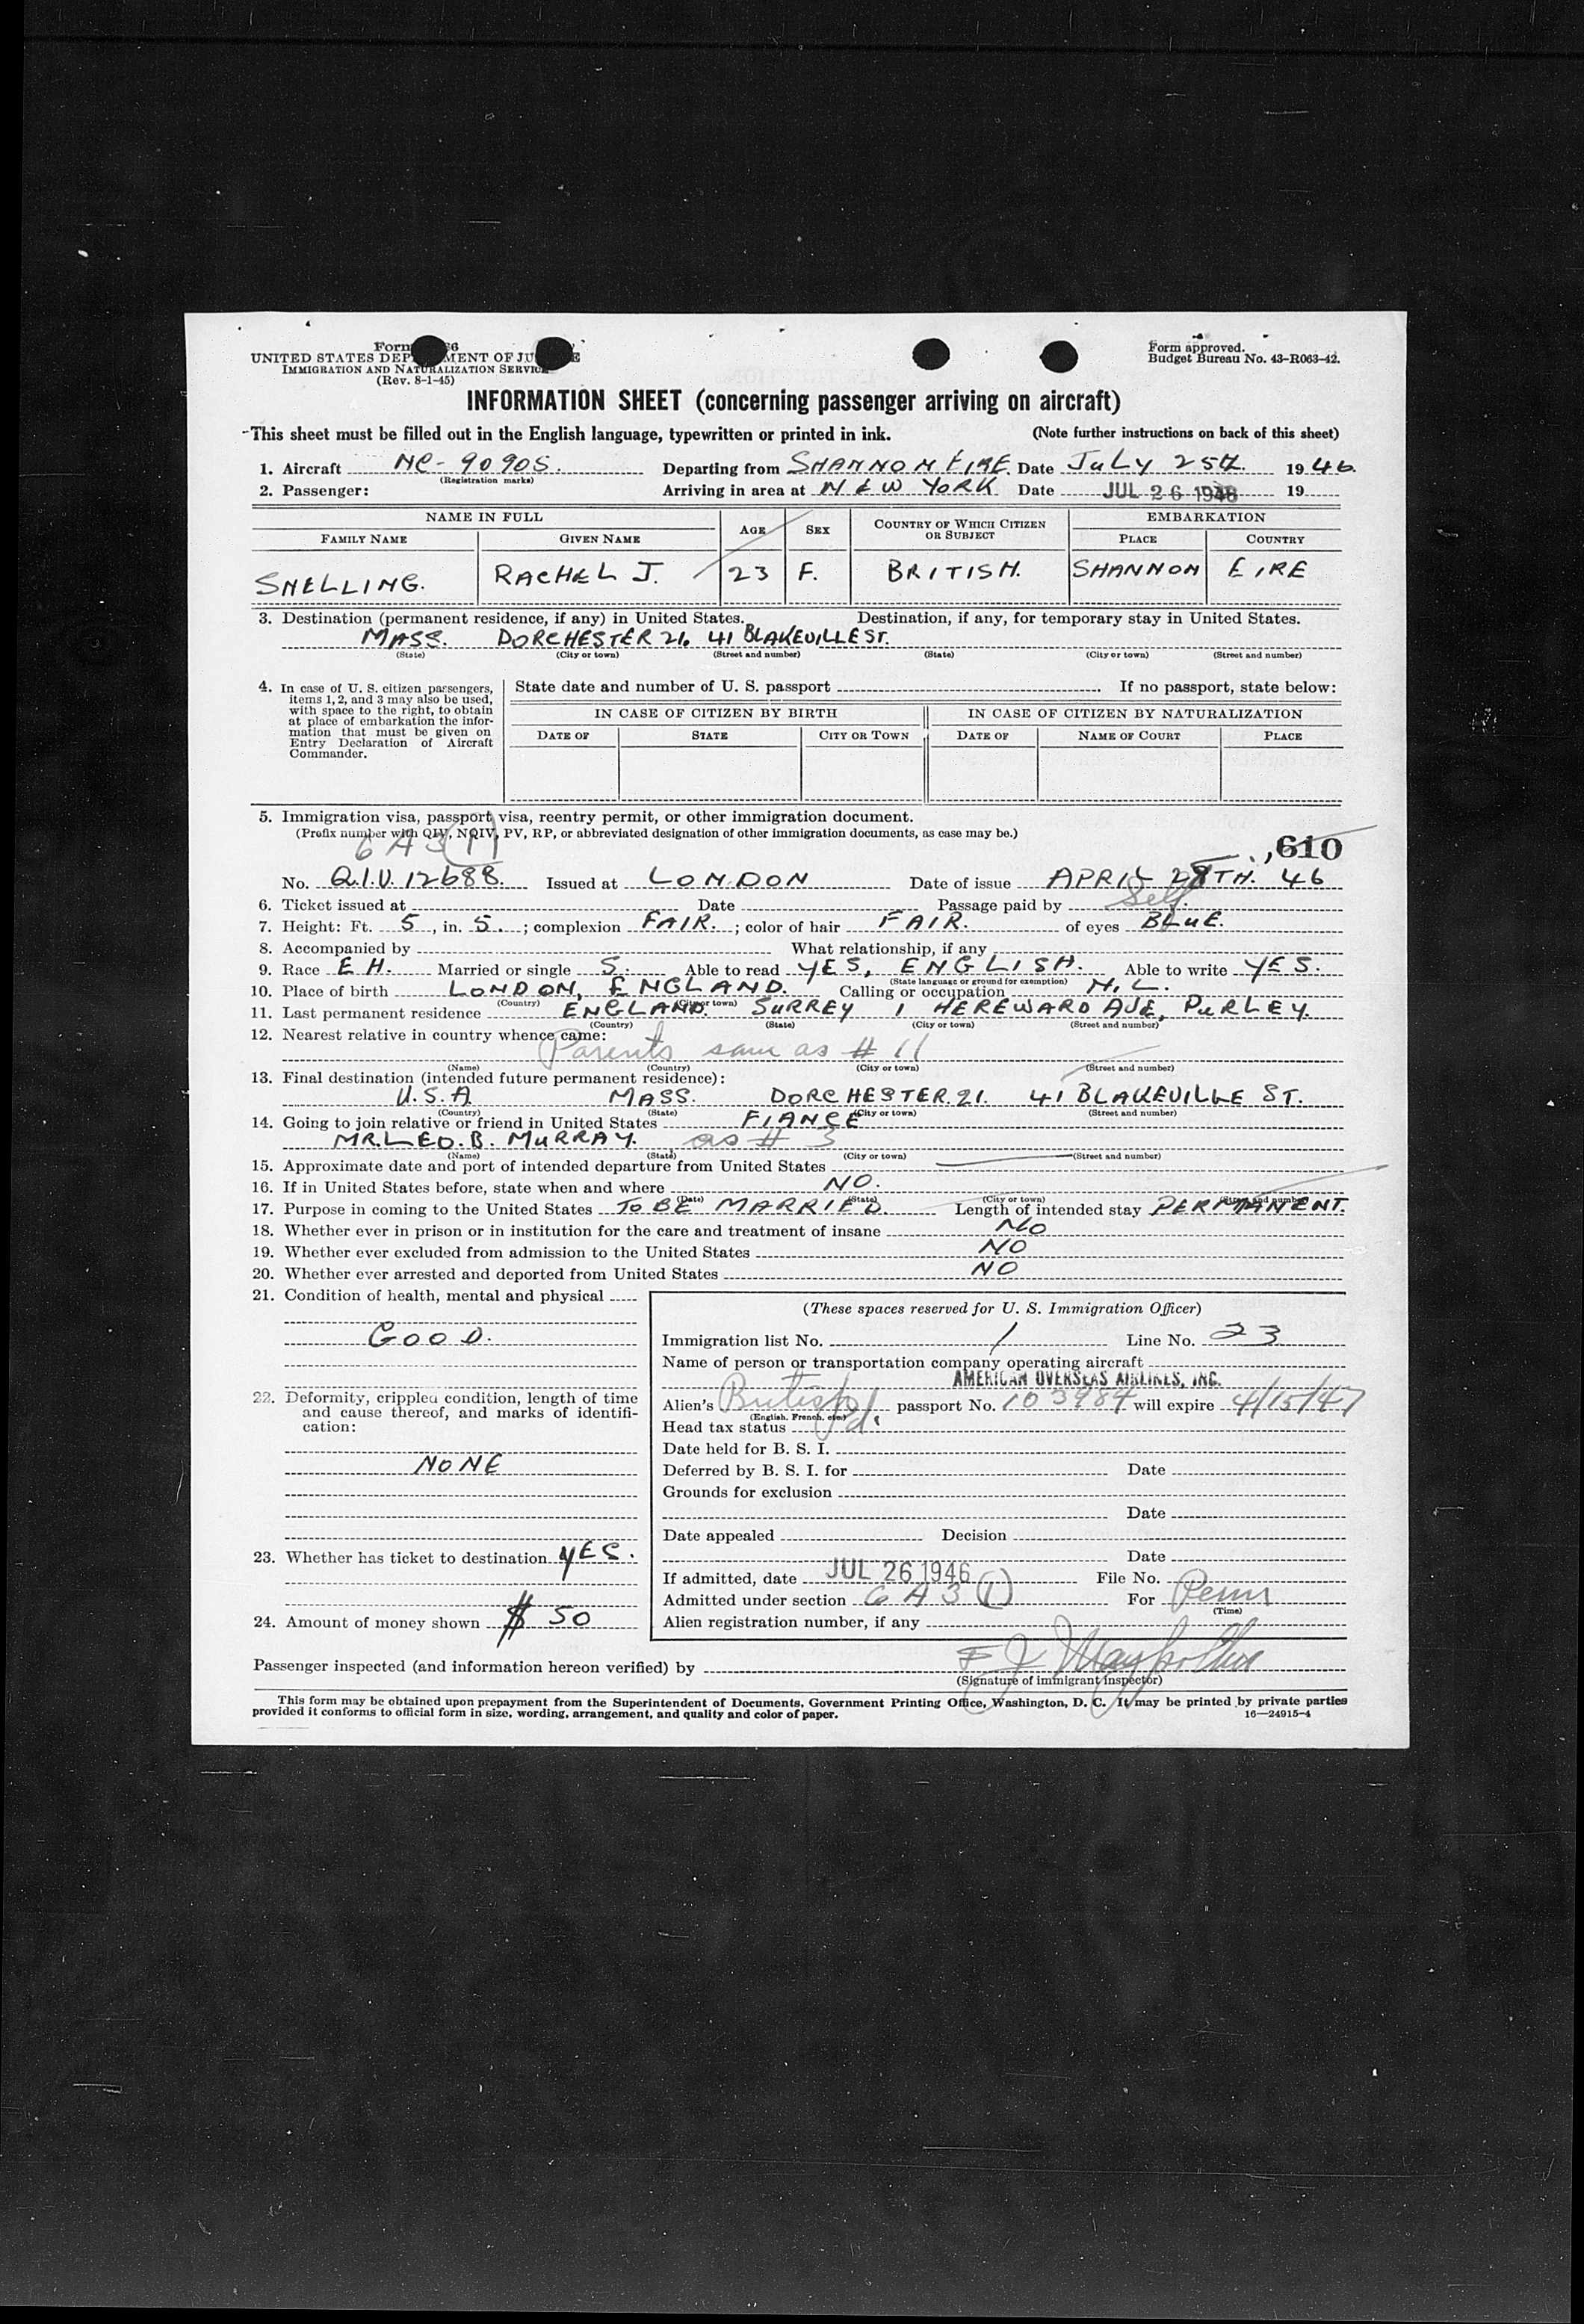 Form
UNITED STATES DEP MENT OF JU E
IMMIGRATION AND NATURALIZATION SERVICE
(Rev. 8-1-45)
Form approved.
Budget Bureau No. 43-R063-42.
INFORMATION SHEET (concerning passenger arriving on aircraft)
This sheet must be filled out in the English language, typewritten or printed in ink. (Note further instructions on back of this sheet)
1. Aircraft NC-90905. Departing from SHANNON EIRE. Date JULY 25th 1946.
(Registration marks)
2. Passenger: Arriving in area at NEW YORK Date JUL 26 1946 19
NAME IN FULL AGE SEX COUNTRY OF WHICH CITIZEN OR SUBJECT EMBARKATION
FAMILY NAME GIVEN NAME PLACE COUNTRY
SNELLING. RACHEL J. 23 F. BRITISH. SHANNON EIRE
3. Destination (permanent residence, if any) in United States. Destination, if any, for temporary stay in United States.
MASS. DORCHESTER 21, 41 BLAKEVILLE ST.
(State) (City or town) (Street and number) (State) (City or town) (Street and number)
4. In case of U. S. citizen passengers, items 1, 2, and 3 may also be used, with space to the right, to obtain at place of embarkation the information that must be given on Entry Declaration of Aircraft Commander.
State date and number of U. S. passport If no passport, state below:
IN CASE OF CITIZEN BY BIRTH IN CASE OF CITIZEN BY NATURALIZATION
DATE OF STATE CITY OR TOWN DATE OF NAME OF COURT PLACE
5. Immigration visa, passport visa, reentry permit, or other immigration document.
(Prefix number with QIV, NQIV, PV, RP, or abbreviated designation of other immigration documents, as case may be.)
6 A 3 (1)
610
No. Q.I.V. 12688. Issued at LONDON Date of issue APRIL 29TH. 46
6. Ticket issued at Date Passage paid by Self.
7. Height: Ft. 5, in. 5.; complexion FAIR.; color of hair FAIR. of eyes BLUE.
8. Accompanied by What relationship, if any
9. Race E H. Married or single S. Able to read YES, ENGLISH. Able to write YES.
(State language or ground for exemption)
10. Place of birth LONDON, ENGLAND. Calling or occupation N.L.
(Country) (City or town)
11. Last permanent residence ENGLAND. SURREY 1 HEREWARD AVE, PURLEY.
(Country) (State) (City or town) (Street and number)
12. Nearest relative in country whence came:
Parents same as # 11
(Name) (Country) (City or town) (Street and number)
13. Final destination (intended future permanent residence):
U.S.A MASS. DORCHESTER. 21. 41 BLAKEVILLE ST.
(Country) (State) (City or town) (Street and number)
14. Going to join relative or friend in United States FIANCE
MR. LEO. B. MURRAY. as # 3
(Name) (State) (City or town) (Street and number)
15. Approximate date and port of intended departure from United States
16. If in United States before, state when and where NO.
(Date) (State) (City or town) (Street and number)
17. Purpose in coming to the United States TO BE MARRIED. Length of intended stay PERMANENT.
18. Whether ever in prison or in institution for the care and treatment of insane NO
19. Whether ever excluded from admission to the United States NO
20. Whether ever arrested and deported from United States NO
21. Condition of health, mental and physical
GOOD.
22. Deformity, crippled condition, length of time and cause thereof, and marks of identification:
NONE
23. Whether has ticket to destination YES.
24. Amount of money shown $ 50
(These spaces reserved for U. S. Immigration Officer)
Immigration list No. 1 Line No. 23
Name of person or transportation company operating aircraft
AMERICAN OVERSEAS AIRLINES, INC.
Alien's British passport No. 103984 will expire 4/15/47
(English, French, etc.)
Head tax status Pd.
Date held for B. S. I.
Deferred by B. S. I. for Date
Grounds for exclusion
Date
Date appealed Decision
Date
If admitted, date JUL 26 1946 File No.
Admitted under section 6 A 3 (1) For Perm
(Time)
Alien registration number, if any
Passenger inspected (and information hereon verified) by F J
(Signature of immigrant inspector)
This form may be obtained upon prepayment from the Superintendent of Documents, Government Printing Office, Washington, D. C. It may be printed by private parties
provided it conforms to official form in size, wording, arrangement, and quality and color of paper. 16—24915-4